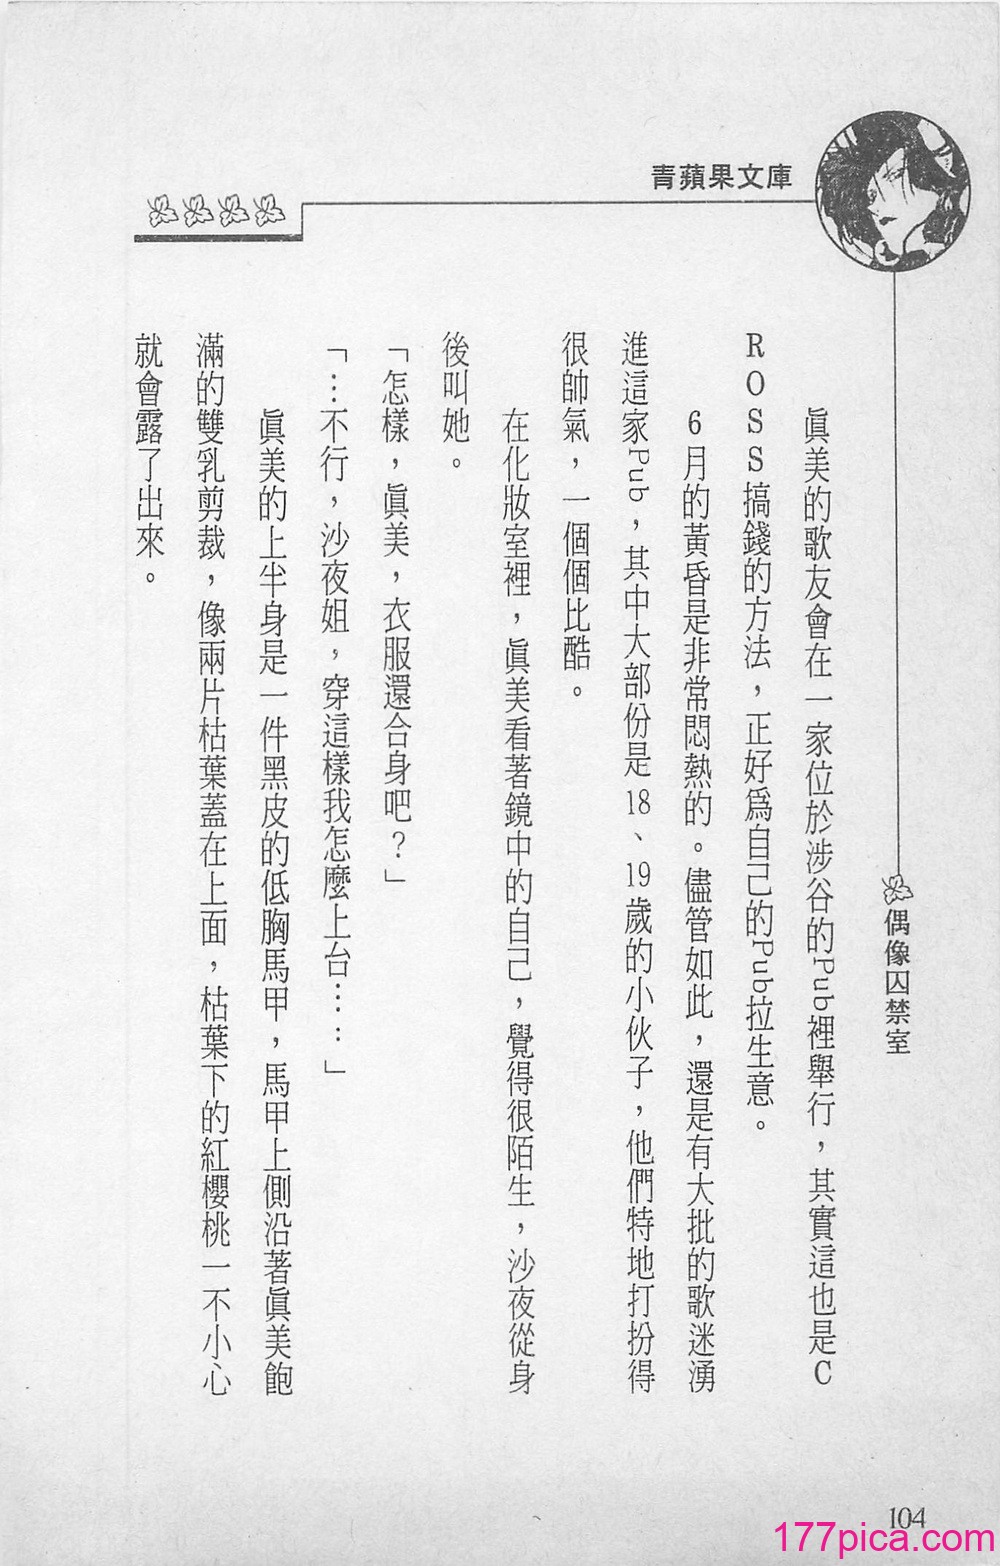 青蘋果文庫
偶像囚禁室
眞美的歌友會在一家位於涉谷的Pub裡舉行，其實這也是C
ROSS搞錢的方法，正好爲自己的Pub拉生意。
6月的黃昏是非常悶熱的。儘管如此，還是有大批的歌迷湧
進這家Pub，其中大部份是18、19歲的小伙子，他們特地打扮得
很帥氣，一個個比酷。
在化妝室裡，眞美看著鏡中的自己，覺得很陌生，沙夜從身
後叫她。
「怎樣，眞美，衣服還合身吧？」
「…不行，沙夜姐，穿這樣我怎麼上台……」
眞美的上半身是一件黑皮的低胸馬甲，馬甲上側沿著眞美飽
滿的雙乳剪裁，像兩片枯葉蓋在上面，枯葉下的紅櫻桃一不小心
就會露了出來。
104
177pica.com